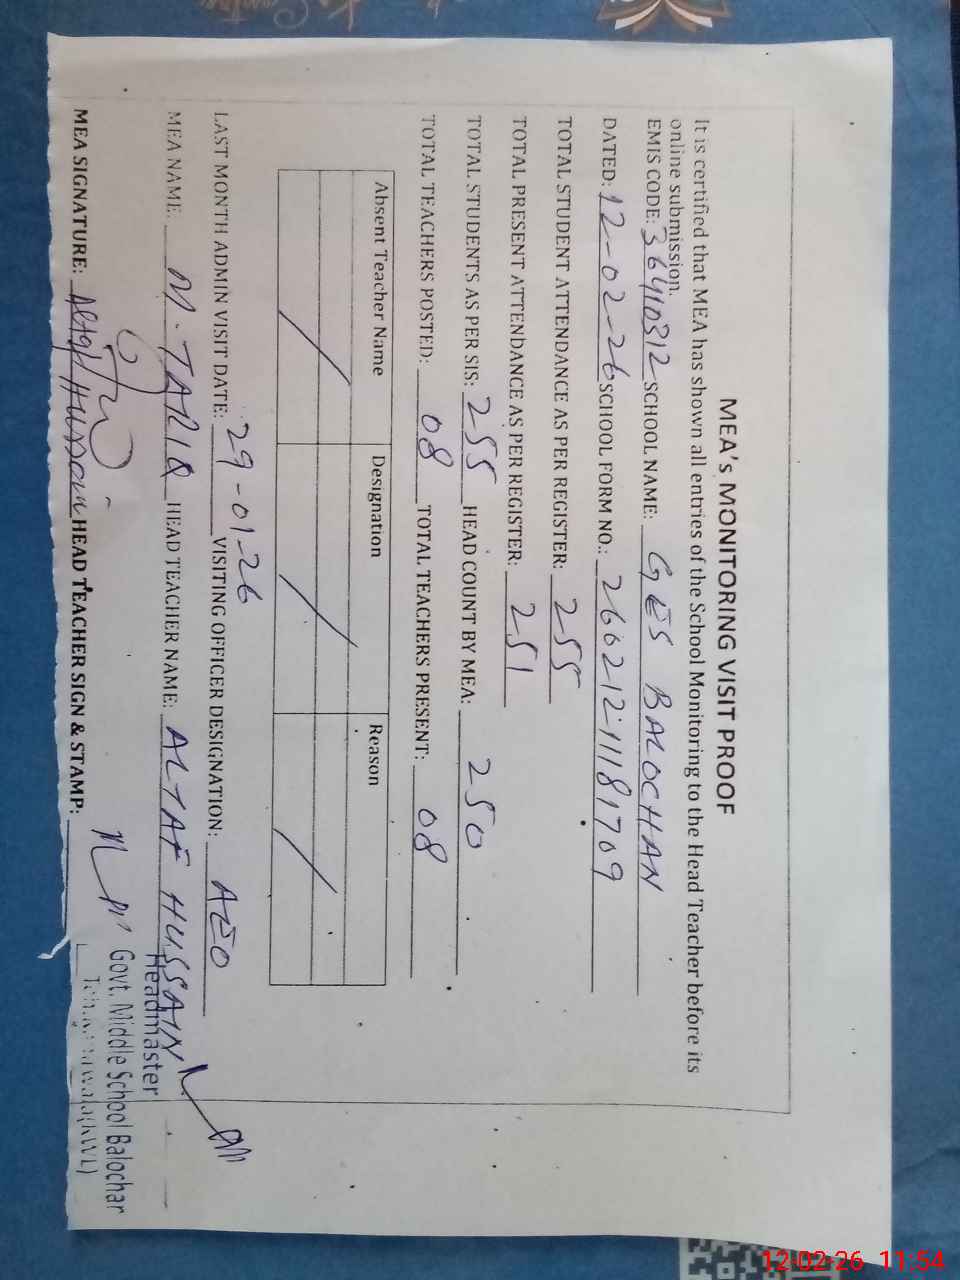 MEA's MONITORING VISIT PROOF
It is certified that MEA has shown all entries of the School Monitoring to the Head Teacher before its
online submission.
EMIS CODE: 36410312 SCHOOL NAME: GES BALOCHAN
DATED: 12-02-26 SCHOOL FORM NO.: 26021211181709
TOTAL STUDENT ATTENDANCE AS PER REGISTER: 255
TOTAL PRESENT ATTENDANCE AS PER REGISTER: 251
TOTAL STUDENTS AS PER SIS: 255 HEAD COUNT BY MEA: 250
TOTAL TEACHERS POSTED: 08 TOTAL TEACHERS PRESENT: 08
Absent Teacher Name Designation Reason
LAST MONTH ADMIN VISIT DATE: 29-01-26 VISITING OFFICER DESIGNATION: AEO
MEA NAME: M. TARIQ HEAD TEACHER NAME: ALTAF HUSSAIN
MEA SIGNATURE: Altaf Hussain HEAD TEACHER SIGN & STAMP:
Headmaster
Govt. Middle School Balochan
12-02-26 11:54